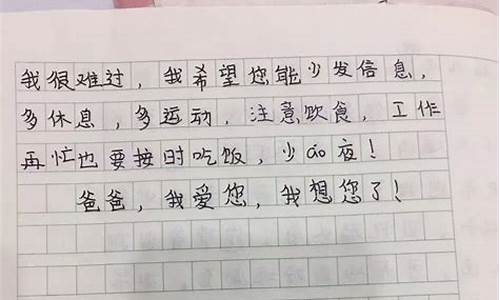 我很难过，我希望您能少发信息，
多休息，多运动，注意饮食，工作
再忙也要按时吃饭，少ao夜！
爸爸，我爱您，我想您了！